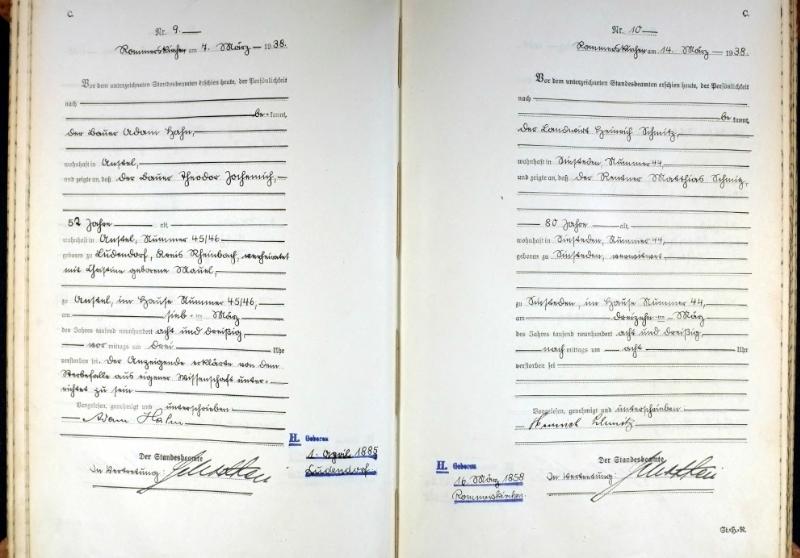 C.
Nr. 9.
Rommerskirchen am 7. März 1938.
Vor dem unterzeichneten Standesbeamten erschien heute, der Persönlichkeit
nach
be kannt,
der Bauer Adam Hahn,
wohnhaft in Anstel,
und zeigte an, daß der Bauer Theodor Jochemich,
52 Jahre alt,
wohnhaft in Anstel, Nummer 45/46
geboren zu Ludendorf, Kreis Rheinbach, verheiratet
mit Christine geborene Mauel,
zu Anstel, im Hause Nummer 45/46,
am sieb ten März
des Jahres tausend neunhundert acht und dreißig
vor mittags um drei Uhr
verstorben sei. Der Anzeigende erklärte von dem
Sterbefalle aus eigener Wissenschaft unter-
richtet zu sein
Vorgelesen, genehmigt und unterschrieben
Adam Hahn
Der Standesbeamte
In Vertretung:
H. Geboren
1. April 1885
Ludendorf
C.
Nr. 10
Rommerskirchen am 14. März 1938.
Vor dem unterzeichneten Standesbeamten erschien heute, der Persönlichkeit
nach
be kannt,
der Landwirt Heinrich Schmitz,
wohnhaft in Sinsteden, Nummer 44,
und zeigte an, daß der Rentner Matthias Schmitz,
80 Jahre alt,
wohnhaft in Sinsteden, Nummer 44,
geboren zu Sinsteden, verwitwet
zu Sinsteden, im Hause Nummer 44,
am dreizehn ten März
des Jahres tausend neunhundert acht und dreißig
nach mittags um acht Uhr
verstorben sei
Vorgelesen, genehmigt und unterschrieben
Schmitz
Der Standesbeamte
In Vertretung:
H. Geboren
16. März 1858
Rommerskirchen
St.H.R.